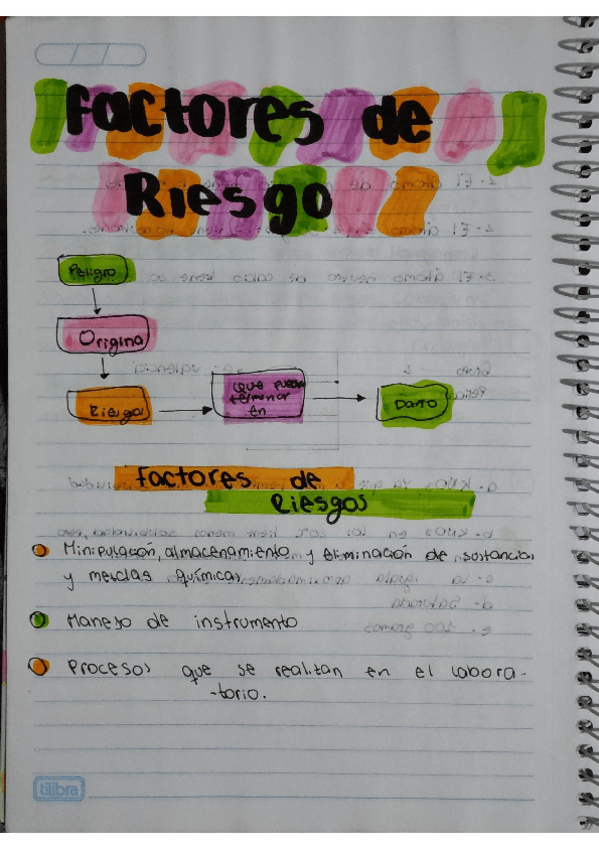 Factores de
Riesgo
Peligro
Origina
Riesgos
que pueden
terminar
en
Daño
Factores de
Riesgos
Minipulación, almacenamiento y eliminación de sustancias
y mesclas químicas
Manejo de instrumento
Procesos que se realitan en el labora-
-torio.
tilibra